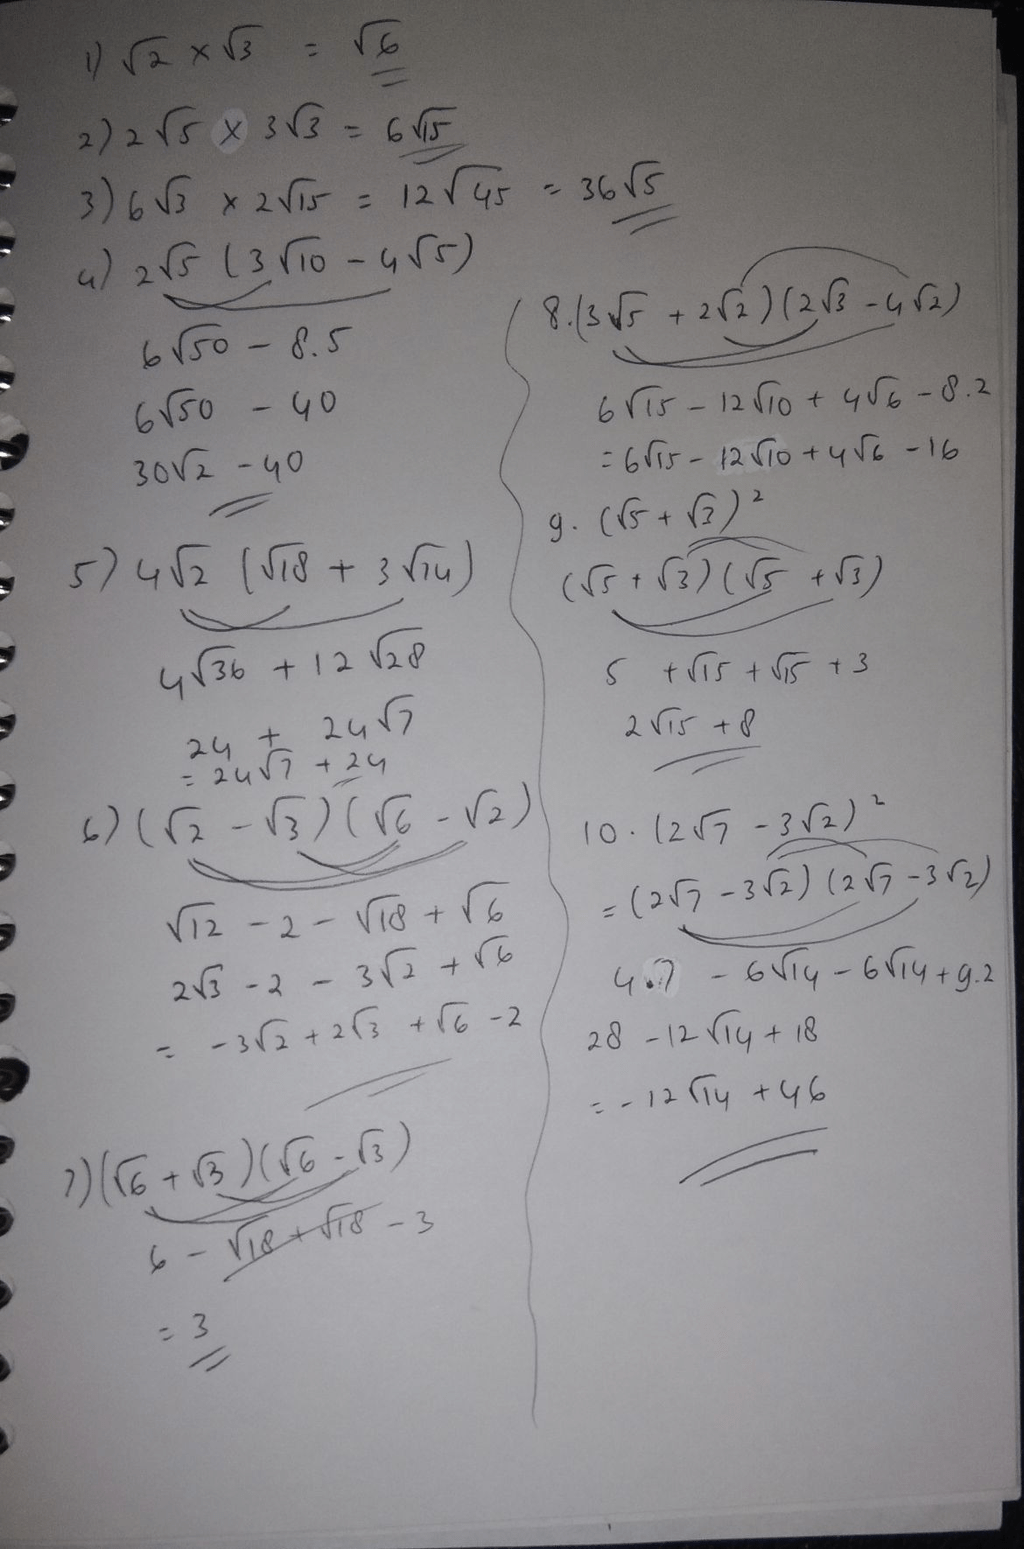 1) √2 × √3 = √6
2) 2√5 × 3√3 = 6√15
3) 6√3 × 2√15 = 12√45 = 36√5
4) 2√5 (3√10 - 4√5)
6√50 - 8.5
6√50 - 40
30√2 - 40
5) 4√2 (√18 + 3√14)
4√36 + 12√28
24 + 24√7
= 24√7 + 24
6) (√2 - √3)(√6 - √2)
√12 - 2 - √18 + √6
2√3 - 2 - 3√2 + √6
= -3√2 + 2√3 + √6 - 2
7) (√6 + √3)(√6 - √3)
6 - √18 + √18 - 3
= 3
8. (3√5 + 2√2)(2√3 - 4√2)
6√15 - 12√10 + 4√6 - 8.2
= 6√15 - 12√10 + 4√6 - 16
9. (√5 + √3)²
(√5 + √3)(√5 + √3)
5 + √15 + √15 + 3
2√15 + 8
10. (2√7 - 3√2)²
= (2√7 - 3√2)(2√7 - 3√2)
4.7 - 6√14 - 6√14 + 9.2
28 - 12√14 + 18
= -12√14 + 46